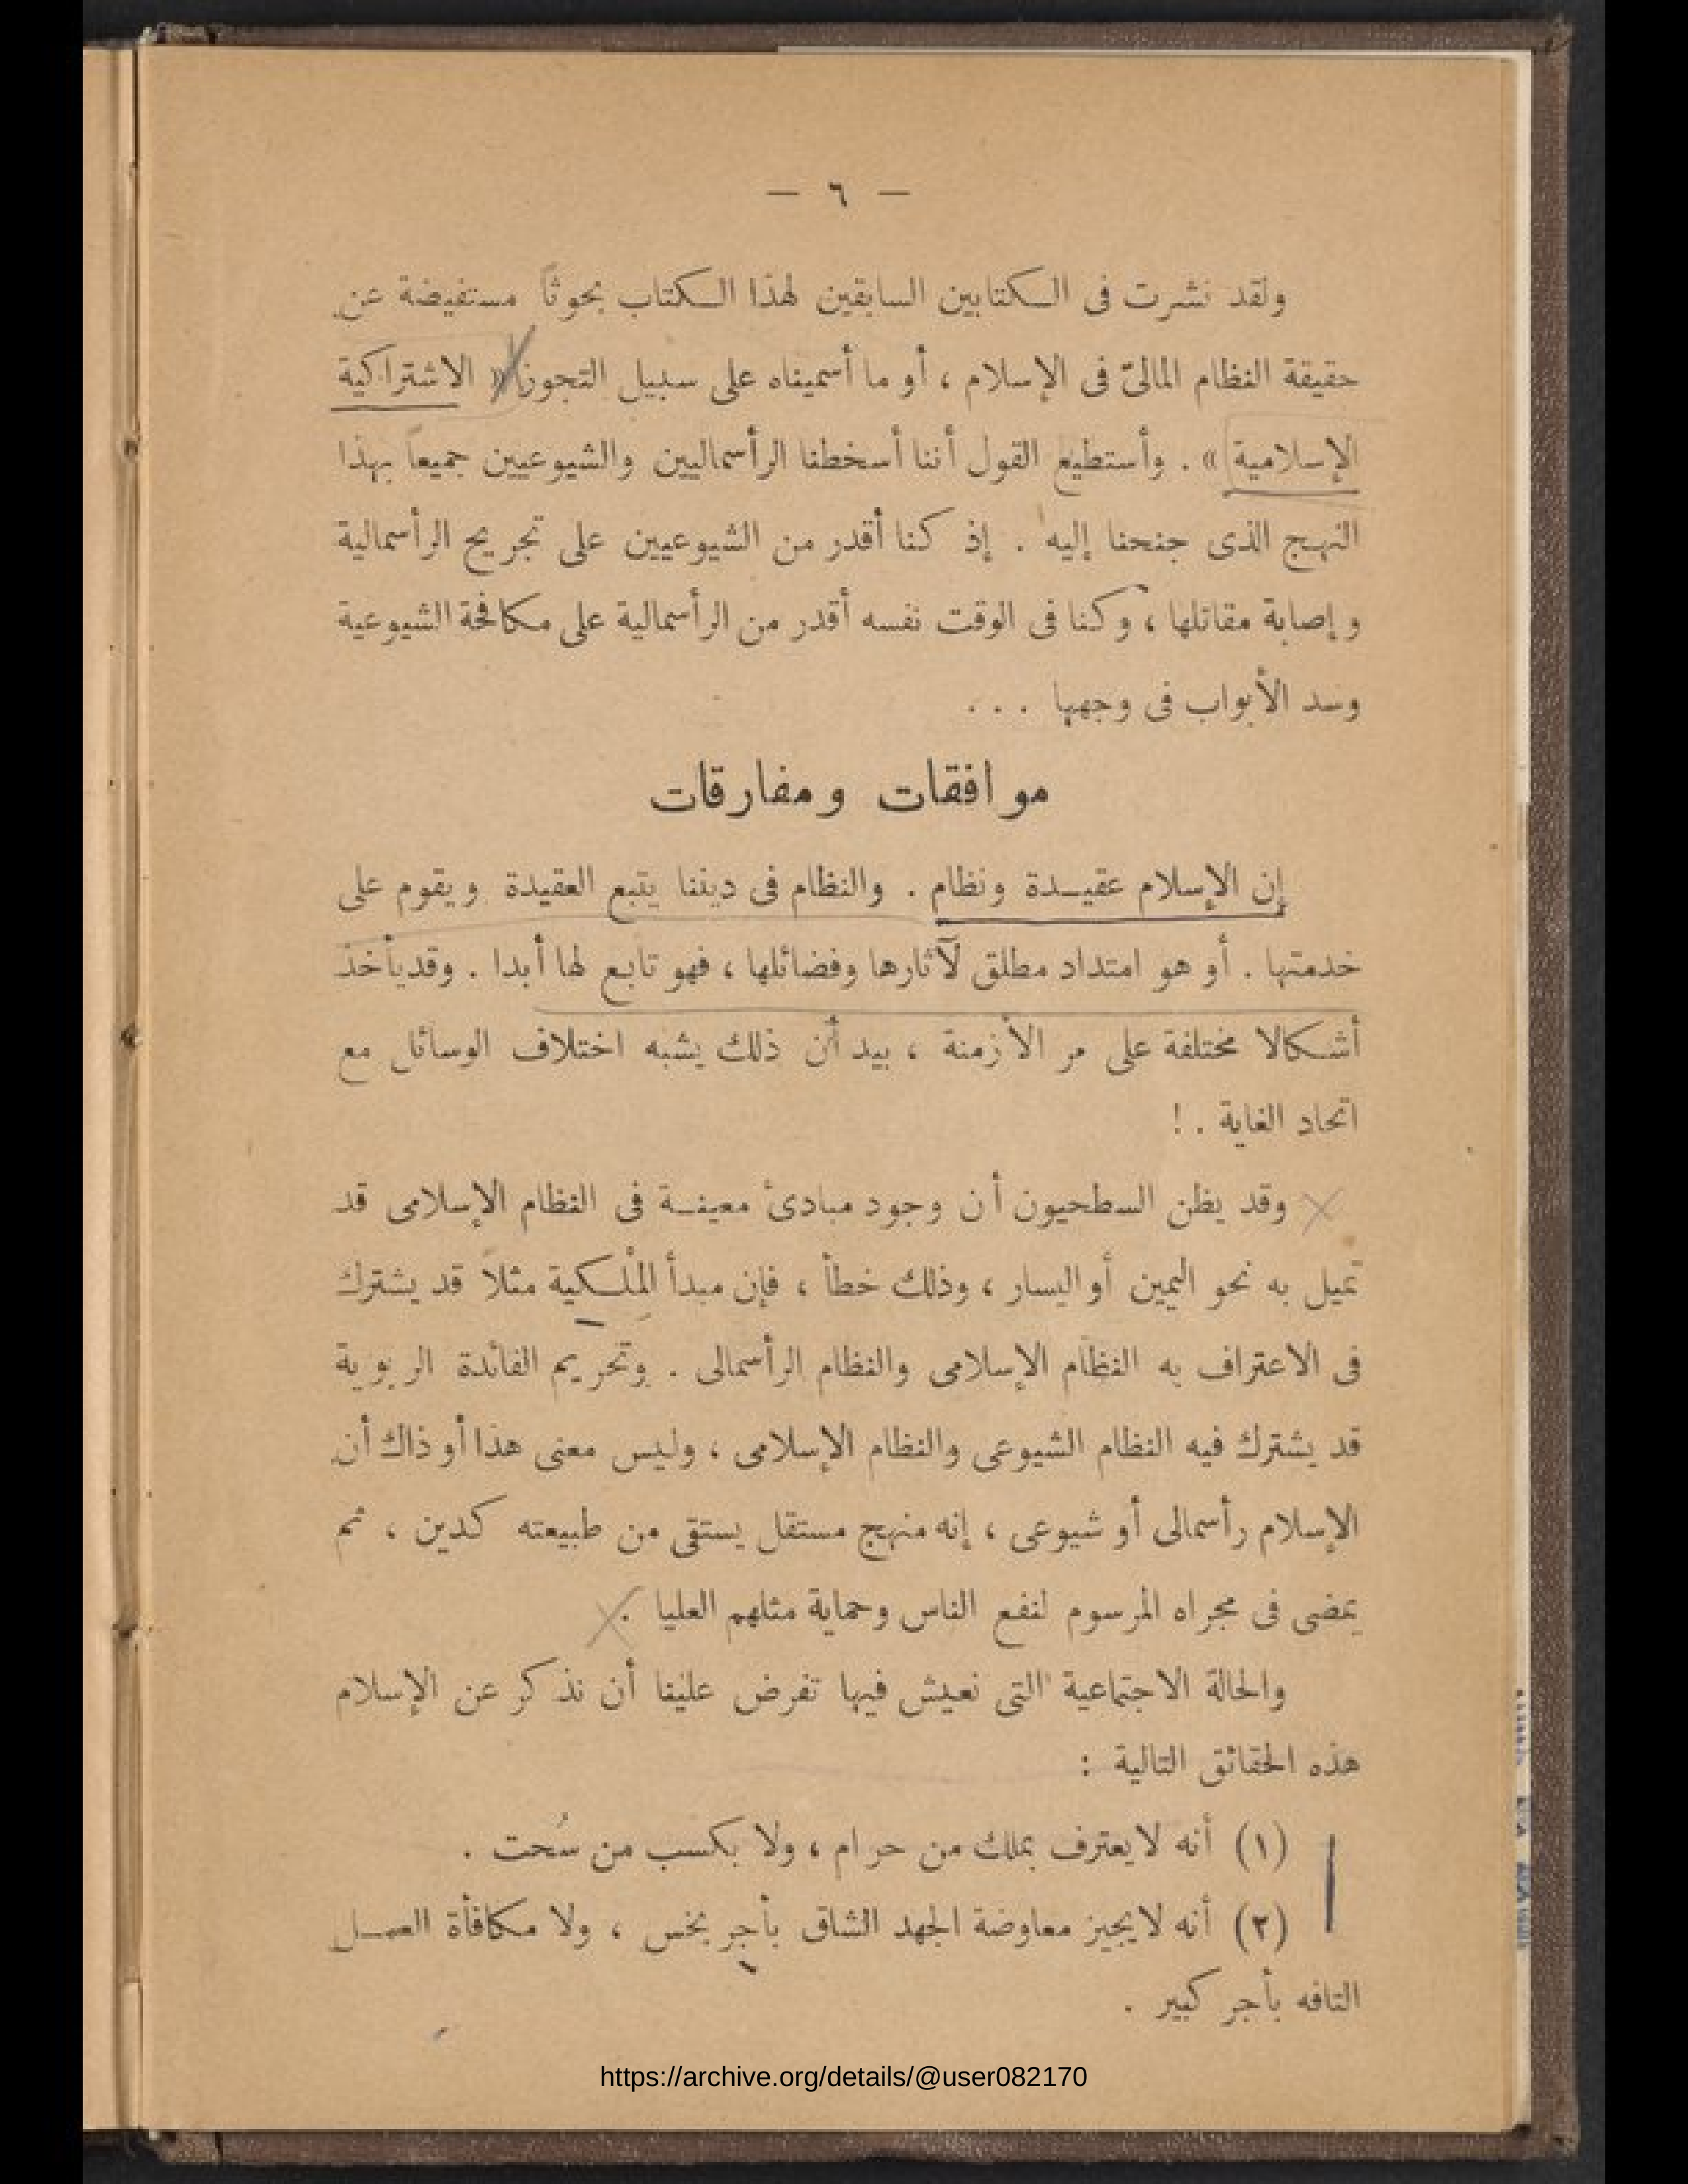 — ٦ —
ولقد نشرت فى الكتابين السابقين لهذا الكتاب بحوثاً مستفيضة عن
حقيقة النظام المالىّ فى الإسلام ، أو ما أسميناه على سبيل التجوز « الاشتراكية
الإسلامية » . وأستطيع القول أننا أسخطنا الرأسماليين والشيوعيين جميعاً بهذا
النهج الذى جنحنا إليه . إذ كنا أقدر من الشيوعيين على تجريح الرأسمالية
وإصابة مقاتلها ، وكنا فى الوقت نفسه أقدر من الرأسمالية على مكافحة الشيوعية
وسد الأبواب فى وجهها . . .
موافقات ومفارقات
إن الإسلام عقيدة ونظام . والنظام فى ديننا يتبع العقيدة ويقوم على
خدمتها . أو هو امتداد مطلق لآثارها وفضائلها ، فهو تابع لها أبدا . وقد يأخذ
أشكالا مختلفة على مر الأزمنة ، بيد أن ذلك يشبه اختلاف الوسائل مع
اتحاد الغاية . !
وقد يظن السطحيون أن وجود مبادئ معينة فى النظام الإسلامى قد
تميل به نحو اليمين أو اليسار ، وذلك خطأ ، فإن مبدأ المِلْكية مثلاً قد يشترك
فى الاعتراف به النظام الإسلامى والنظام الرأسمالى . وتحريم الفائدة الربوية
قد يشترك فيه النظام الشيوعى والنظام الإسلامى ، وليس معنى هذا أو ذاك أن
الإسلام رأسمالى أو شيوعى ، إنه منهج مستقل يستقى من طبيعته كدين ، ثم
يمضى فى مجراه المرسوم لنفع الناس وحماية مثلهم العليا .
والحالة الاجتماعية التى نعيش فيها تفرض علينا أن نذكر عن الإسلام
هذه الحقائق التالية :
(١) أنه لا يعترف بملك من حرام ، ولا بكسب من سُحت .
(٢) أنه لا يجيز معاوضة الجهد الشاق بأجر بخس ، ولا مكافأة العمل
التافه بأجر كبير .
https://archive.org/details/@user082170